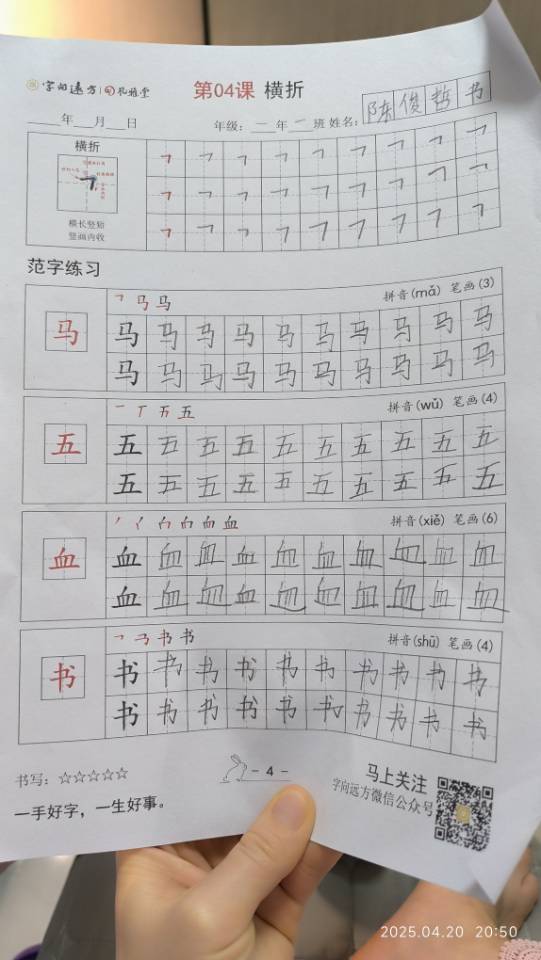 字向远方 | 孔雅堂
第04课 横折
____年___月___日 年级：一年一班 姓名：陈俊哲书
横折
横长竖短
竖画内收
㇕ ㇕ ㇕ ㇕ ㇕ ㇕ ㇕ ㇕ ㇕
㇕ ㇕ ㇕ ㇕ ㇕ ㇕ ㇕ ㇕ ㇕
㇕ ㇕ ㇕ ㇕ ㇕ ㇕ ㇕ ㇕ ㇕
范字练习
拼音(mǎ) 笔画(3)
马
马 马 马 马 马 马 马 马 马 马
马 马 马 马 马 马 马 马 马 马
拼音(wǔ) 笔画(4)
五
五 五 五 五 五 五 五 五 五 五
五 五 五 五 五 五 五 五 五 五
拼音(xiě) 笔画(6)
血
血 血 血 血 血 血 血 血 血 血
血 血 血 血 血 血 血 血 血 血
拼音(shū) 笔画(4)
书
书 书 书 书 书 书 书 书 书 书
书 书 书 书 书 书 书 书 书 书
书写：☆☆☆☆☆
- 4 -
马上关注
字向远方微信公众号
一手好字，一生好事。
2025.04.20 20:50